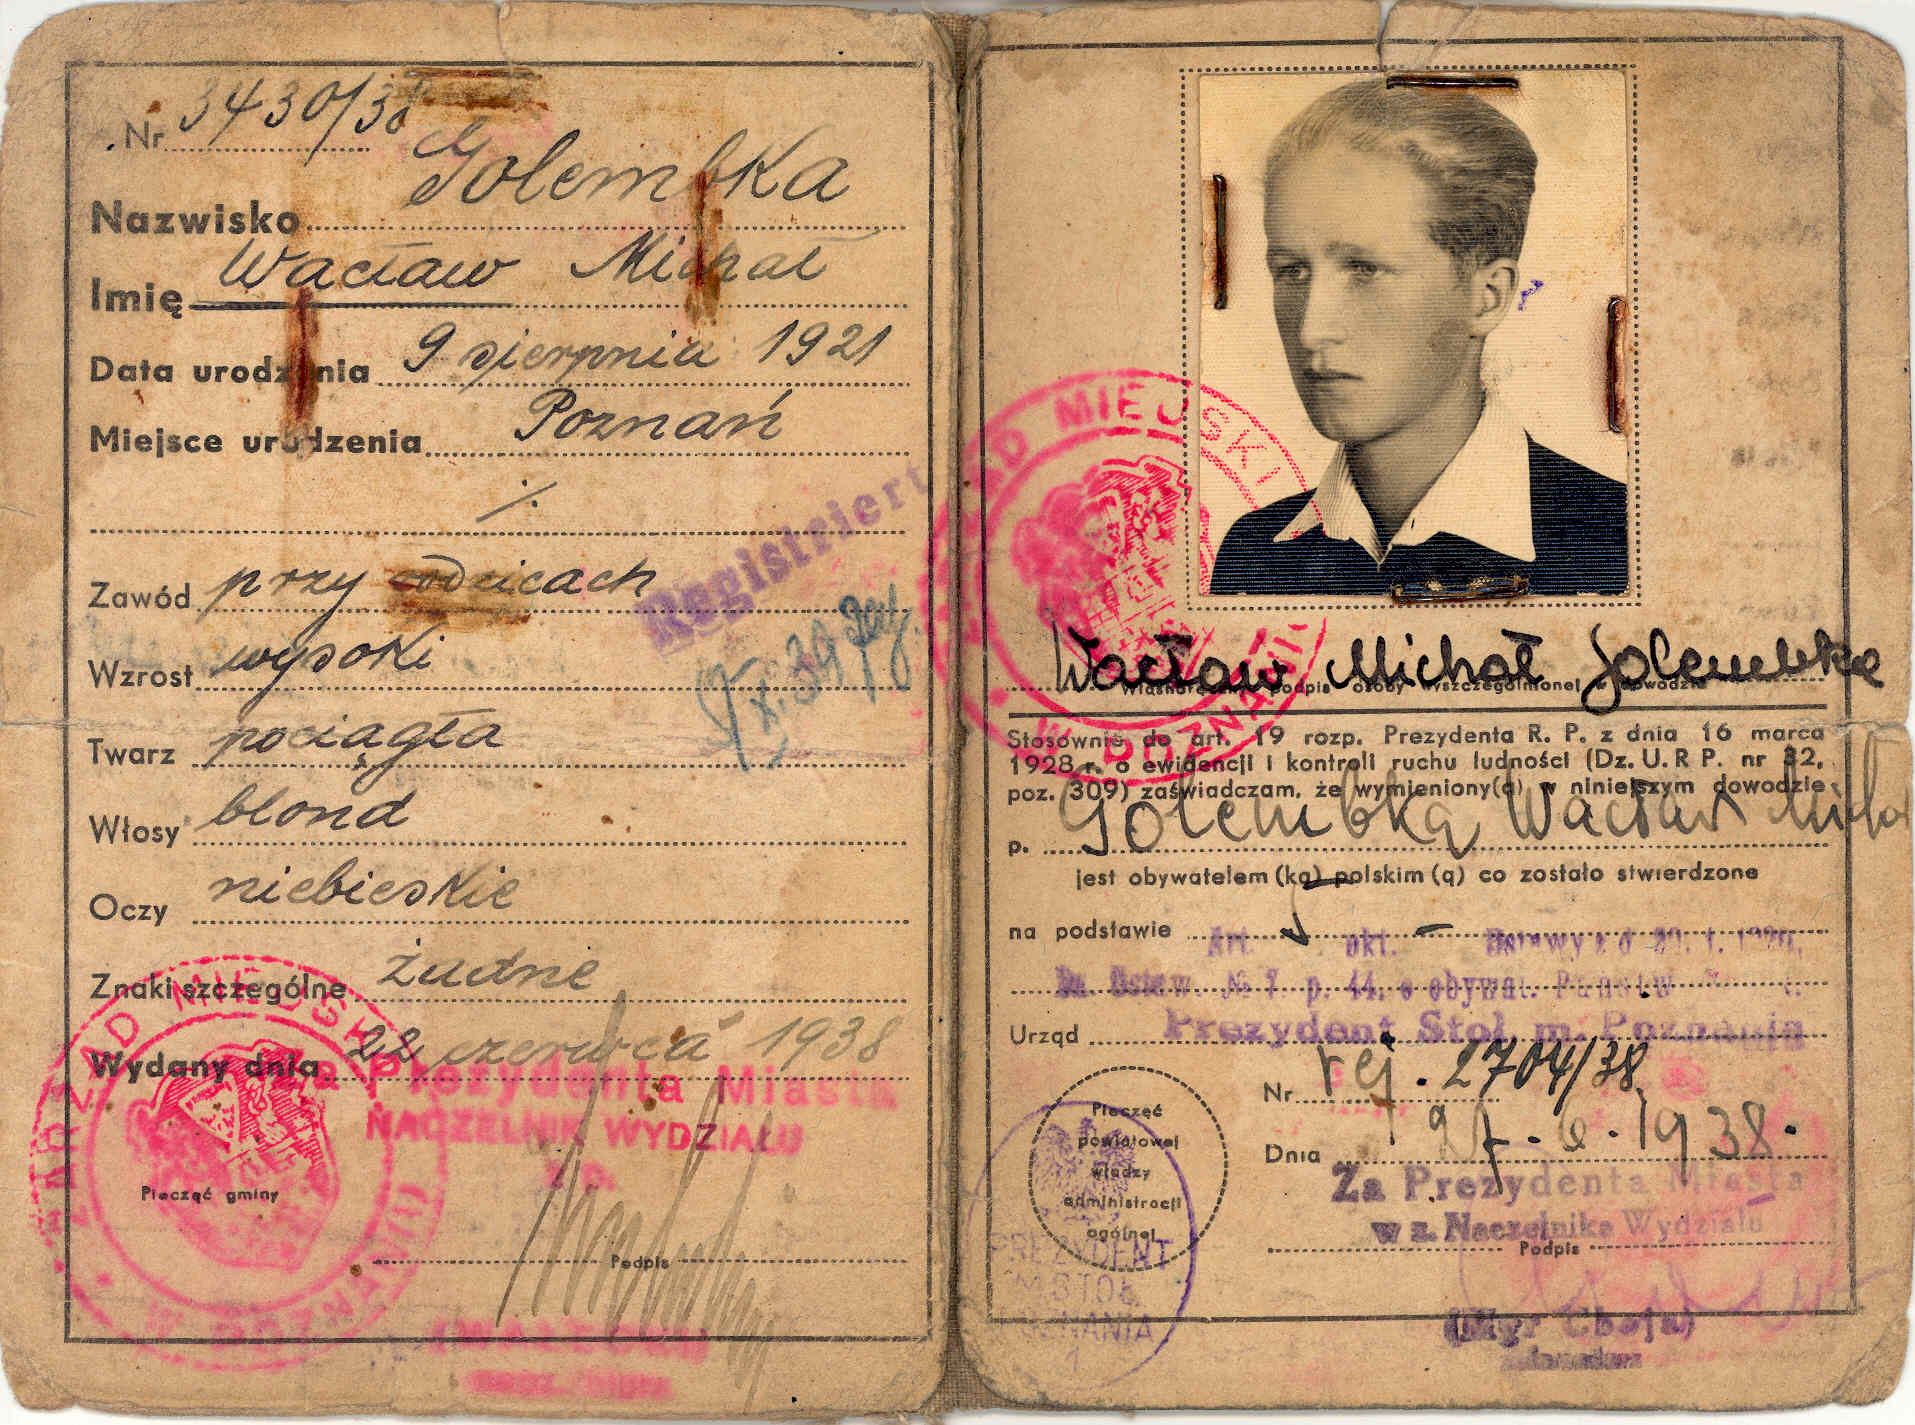 Nr 3430/38
Nazwisko Golembka
Imię Wacław Michał
Data urodzenia 9 sierpnia 1921
Miejsce urodzenia Poznań
Registriert
Zawód przy rodzicach
Wzrost wysoki
Twarz pociągła
Włosy blond
Oczy niebieskie
Znaki szczególne żadne
Wydany dnia 22 czerwca 1938
Prezydenta Miasta
NACZELNIK WYDZIAŁU
ZARZĄD MIEJSKI W POZNANIU
Pieczęć gminy
Podpis
ZARZĄD MIEJSKI W POZNANIU
Wacław Michał Golembka
Własnoręczny podpis osoby wyszczególnionej w dowodzie
Stosownie do art. 19 rozp. Prezydenta R. P. z dnia 16 marca
1928 r. o ewidencji i kontroli ruchu ludności (Dz. U. R P. nr 32,
poz. 309) zaświadczam, że wymieniony(a) w niniejszym dowodzie
p. Golembką Wacław
jest obywatelem (ką) polskim (ą) co zostało stwierdzone
na podstawie Art. ukt. Ustawy z d
Dz. Ustaw. № 7. p. 44. o obywat. Państw
Urząd Prezydent Stoł. m. Poznania
Nr rej. 2704/38
Dnia 6. 1938.
Pieczęć
powiatowej
władzy
administracji
ogólnej
PREZYDENT
M STOŁ.
POZNANIA
1
Za Prezydenta Miasta
w z. Naczelnika Wydziału
Podpis